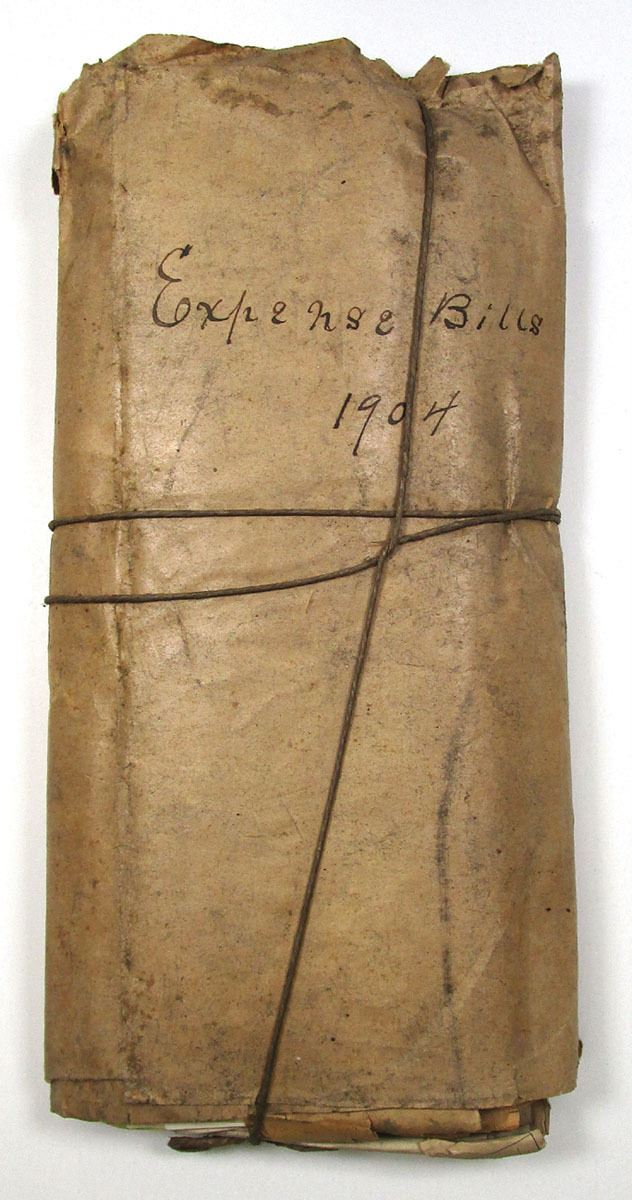 Expense Bills
1904